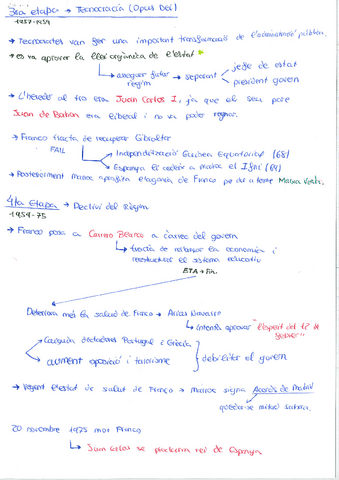 3ra etapa → Tecnocràcia (Opus Dei)
1957-1959
→ Tecnocrates van fer una important transformació de l'administració pública.
→ es va aprovar la llei orgànica de l'estat *
→ assegurar futur règim → separant
jefe de estat
president govern
→ L'hereder al tro era Juan Carlos I, ja que el seu pare
Juan de Borbón era liberal i no va poder regnar.
→ Franco tracta de recuperar Gibraltar
FAIL
Independització Guinea Equatorial (68)
Espanya li cedeix a maroc el Ifni (69)
→ Posteriorment maroc aprofita l'agonia de Franco per dur a terme Marxa Verda.
4rta Etapa → Declivi del Règim
1959-75
→ Franco posa a Carrero Blanco a càrrec del govern
tracta de restaurar la economia i
reestructurar el sistema educatiu
ETA → fin.
Deteriora més la salud de Franco → Arias Navarro
intenta aprovar "l'esperit del 12 de
febrer"
Caiguda dictadures Portugal i Grècia
augment oposició i terrorisme
debiliten el govern
→ Vegent l'estat de salut de Franco → Maroc signa Acords de Madrid
quedar-se mitad sahara.
20 novembre 1975 mor Franco
Juan Carlos se proclama rei de Espanya